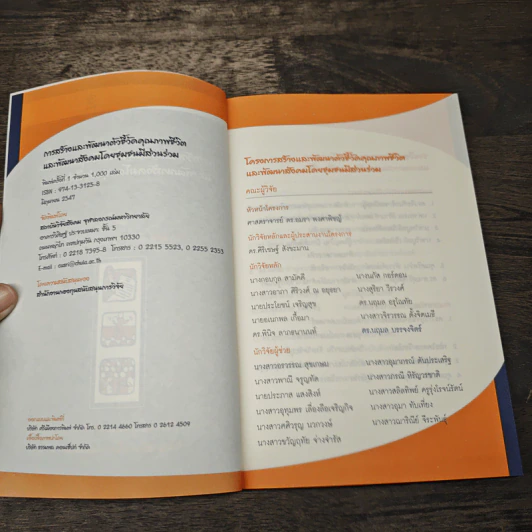 การสร้างและพัฒนาตัวชี้วัดคุณภาพชีวิต
และพัฒนาสังคมโดยชุมชนมีส่วนร่วม
พิมพ์ครั้งที่ 1 จำนวน 1,000 เล่ม
ISBN : 974-13-3125-8
มิถุนายน 2547
จัดพิมพ์โดย
สถาบันวิจัยสังคม จุฬาลงกรณ์มหาวิทยาลัย
อาคารวิศิษฐ์ ประจวบเหมาะ ชั้น 5
ถนนพญาไท เขตปทุมวัน กรุงเทพฯ 10330
โทรศัพท์ : 0 2218 7395-8 โทรสาร : 0 2215 5523, 0 2255 2353
E-mail : cusri@chula.ac.th
โดยความสนับสนุนของ
สำนักงานกองทุนสนับสนุนการวิจัย
โทร. 0 2214 4660 โทรสาร 0 2612 4509
โครงการสร้างและพัฒนาตัวชี้วัดคุณภาพชีวิต
และพัฒนาสังคมโดยชุมชนมีส่วนร่วม
คณะผู้วิจัย
หัวหน้าโครงการ
ศาสตราจารย์ ดร.อมรา พงศาพิชญ์
นักวิจัยหลักและผู้ประสานงานโครงการ
ดร.ศิริเชษฐ์ สังขะมาน
นักวิจัยหลัก
นางกอบกุล สามัคคี
นางนภัส กอร์ดอน
นางสาวอาภา ศิริวงศ์ ณ อยุธยา
นางสุริยา วีรวงศ์
นายประโยชน์ เจริญสุข
ดร.นฤมล อรุโณทัย
นายธเนกพล เกื้อมา
นางสาวจิรวรรณ ตั้งจิตเมธี
ดร.พินิจ ลาภธนานนท์
ดร.นฤมล บรรจงจิตร์
นักวิจัยผู้ช่วย
นางสาวอรวรรณ สุขเกษม
นางสาวอุมาภรณ์ ตันประเสริฐ
นางสาวพาณี จรูญทัด
นางสาวภรณี หิรัญวรชาติ
นายประภาส แสงสิงห์
นางสาวสลิลทิพย์ ครูรุ่งโรจน์รัตน์
นางสาวอุทุมพร เลื่องลือเจริญกิจ
นางสาวอุมา ทับเที่ยง
นางสาวศศิวรุญ นวกวงษ์
นางสาวเมาริณีย์ จีระพันธุ์
นางสาวขวัญฤทัย จ่างจำรัส